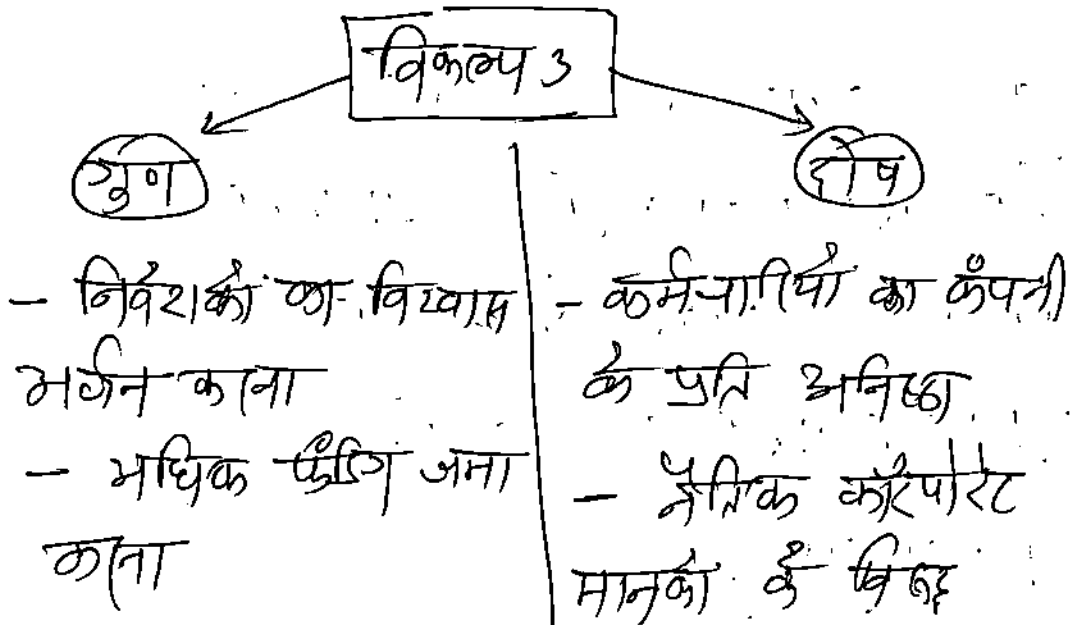 विकल्प 3
गुण
- निवेशकों का विश्वास
अर्जन करना
- अधिक फंडिंग जमा
करना
दोष
- कर्मचारियों का कंपनी
के प्रति अनिष्ठा
- नैतिक कॉरपोरेट
मानकों के विरूद्ध